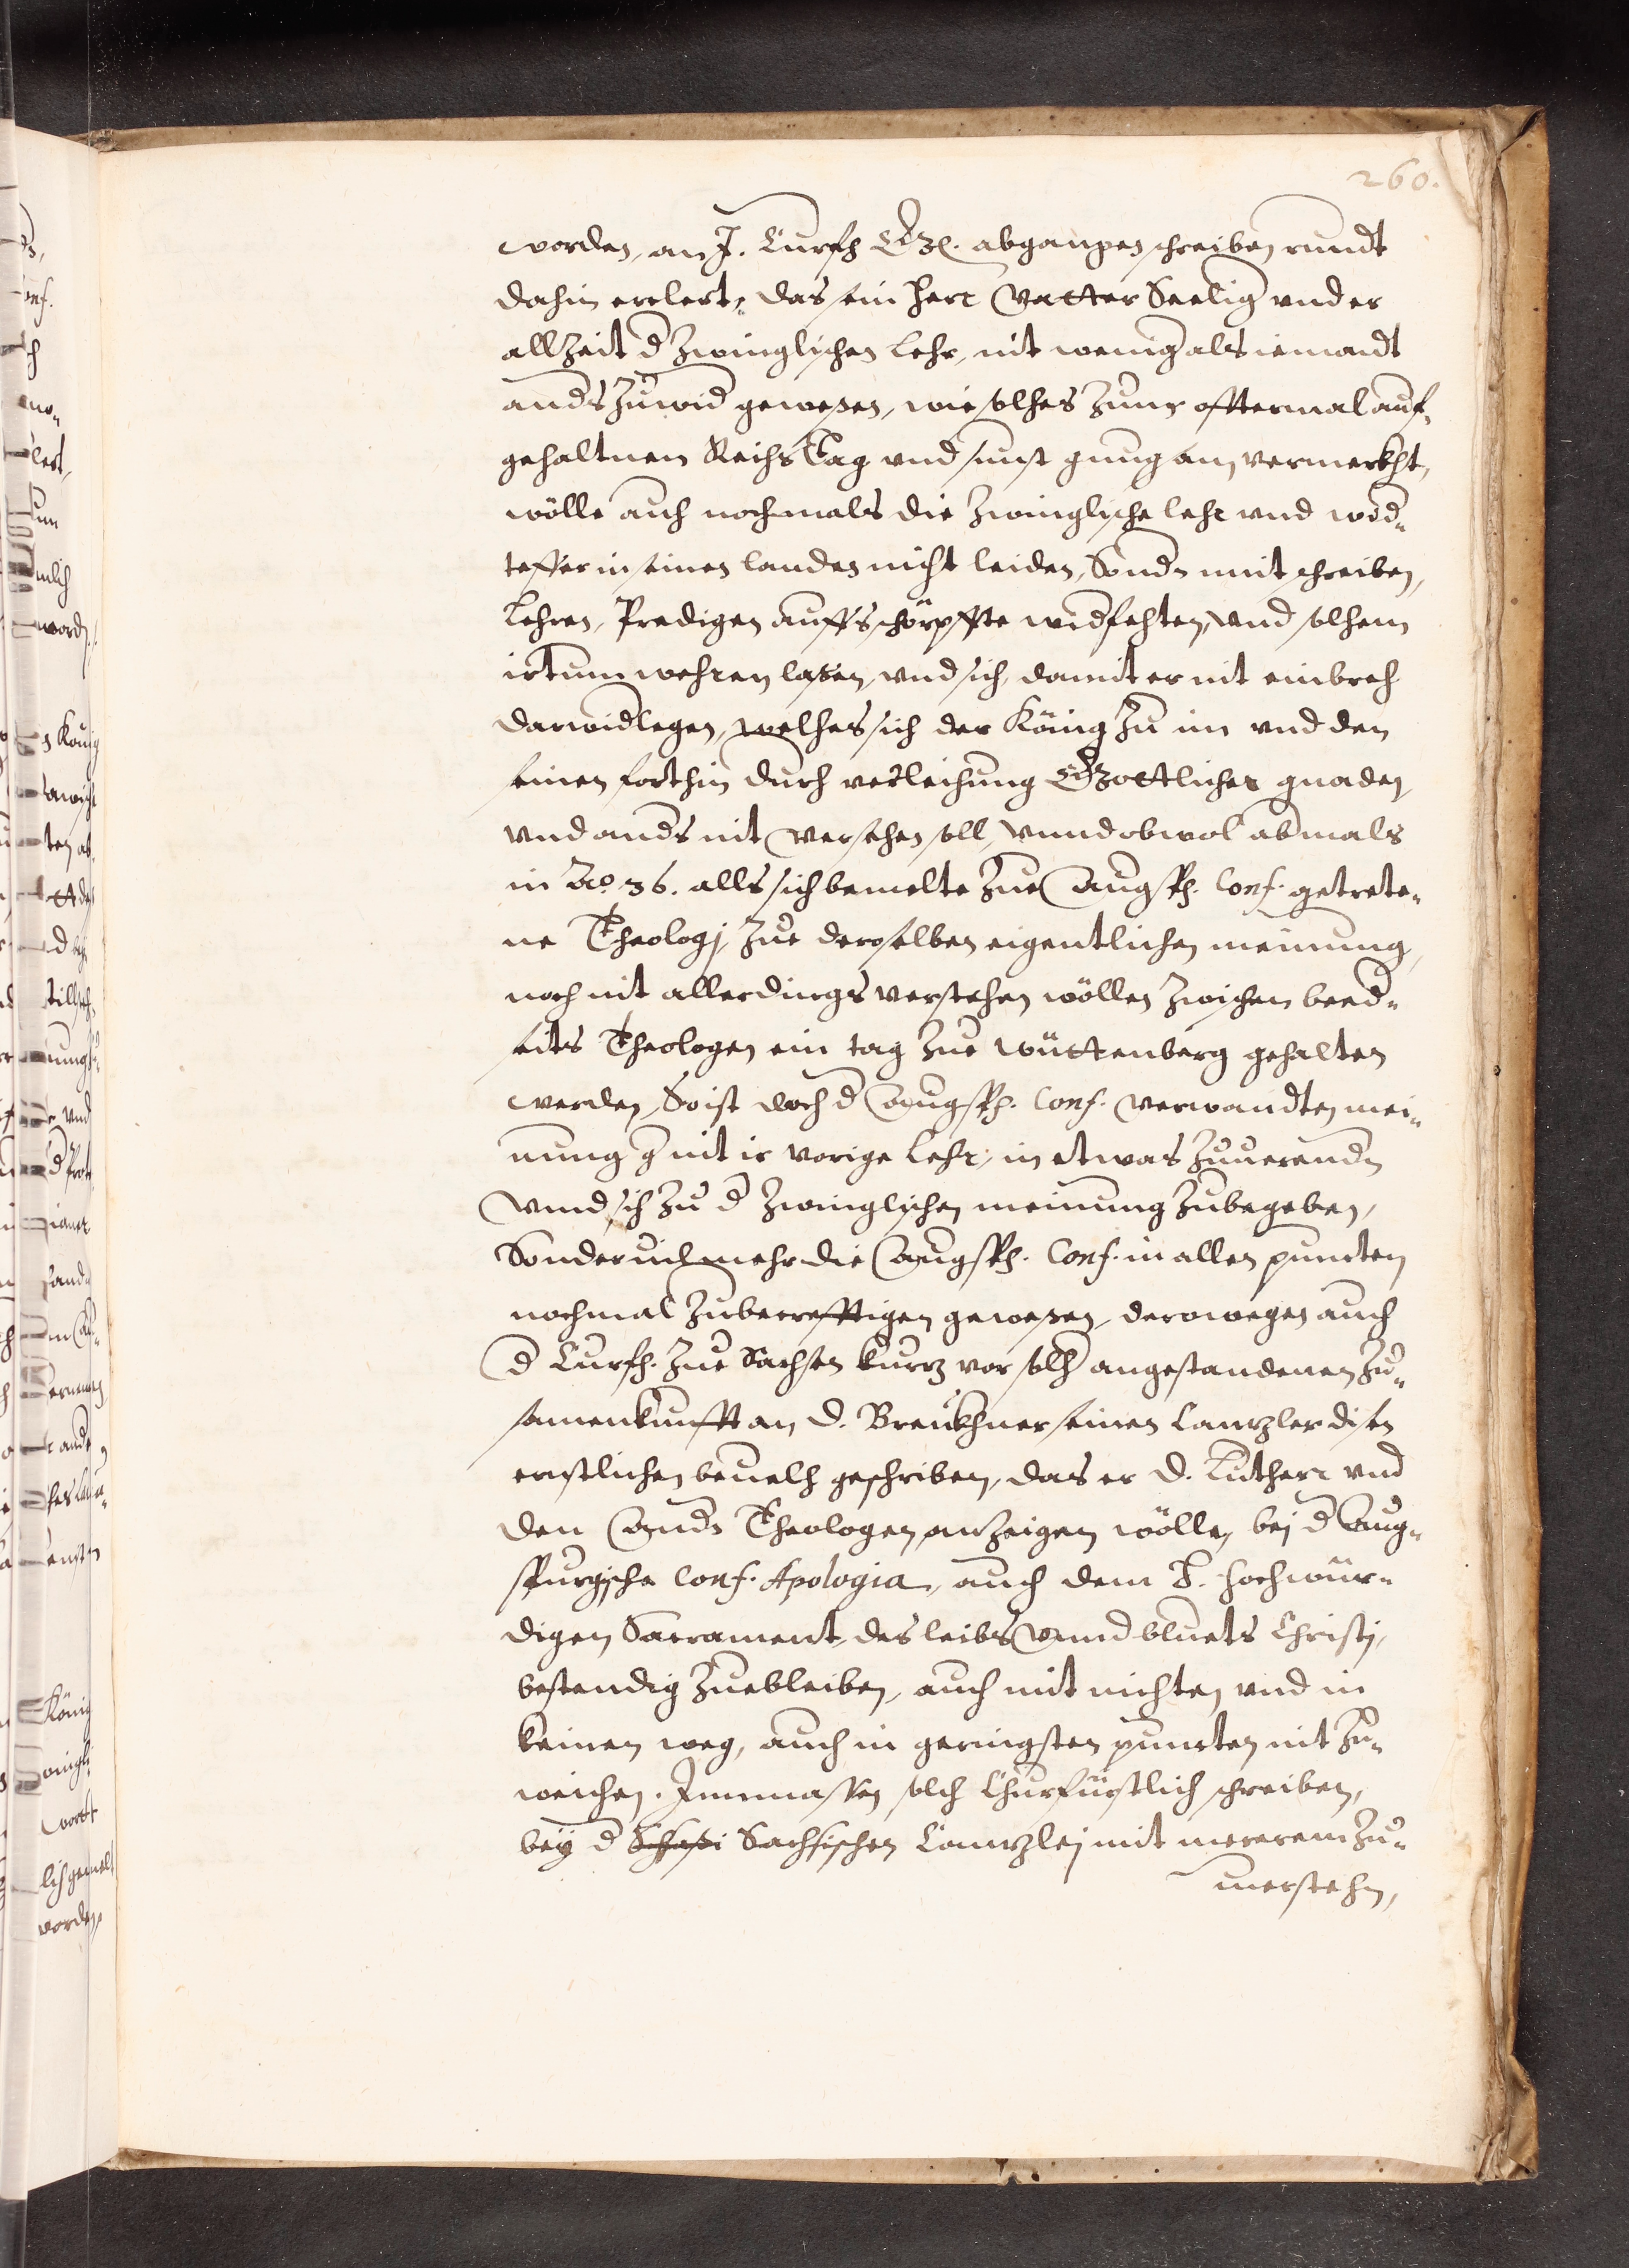 260.
worden, an J. Curfh Gd. abgangen schreiben rundt
dahin erclert, das sein herr Vatter Seelig vnd er
allzeit d Zwinglischen Lehr, nit wenig als iemandt
ands zuwid gewesen, wie solhes Zuuor offtermal auf
gehaltnen Reihs Tag vnd sunst gnug an vermerkht,
wölle auch nochmals die Zwinglische lehr vnd wid„
teffer in seinen landen nicht leiden, Sondn mit schreiben,
Lehren, Predigen auffs schörpffte widfehten, vnd solhem
irtum wehren lassen, vnd sich damit er nit einbreh
darwidlegen, welhes sich der König zu im vnd den
seinen forthin durh verleihung Gottlicher gnaden
vnd ands nit versehen soll, vnnd obwol abmals
in Ao. 36. alls sich bemelte zue Augsp. Conf. getrete„
ne Theologj, zue deroselben eigentlichen meinung,
noch nit allerdings verstehen wöllen zwischen beed„
seits Theologen ein tag zue wüttenberg gehalten
werden, So ist doch d Augsp. Conf. verwandten mei„
nung g nit ir vorige Lehr, in etwas zuuerendn
Vnnd sich zu d Zwinglischen meinung zubegeben,
Sonder vil mehr die Augsp. Conf. in allen puncten
nochmal zubecrefftigen gewesen, derowegen auch
d Curfh. zue Sachsen kurz vor solh angestandenen zu„
samenkunfft an D. Breukhner seinen Canzler disen
ernstlichen beuelh geschriben, das er D. Luthern vnd
den Andn Theologen anzeigen wölle, bej d Aug„
spurgische Conf. Apologia, auch dem H. hochwür„
digen Sacrament, des leibs Vnnd bluets Christj,
bestendig zuebleiben, auch mit nichten vnd in
keinen weg, auch in geringsten puncten nit zu„
weichen. Immassen solch Churfürstlich schreiben,
bey d Sachsischen Canzlej mit mererem zu„
uerstehn,